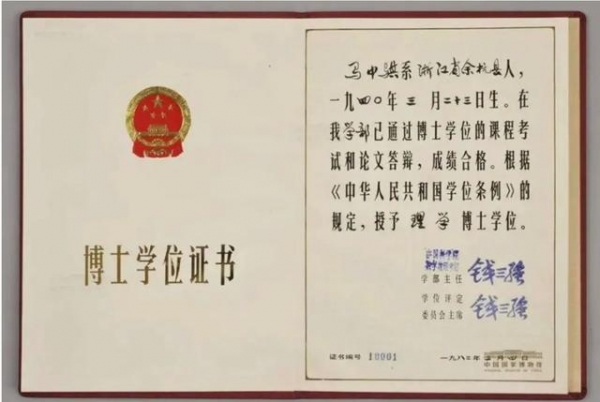 博士学位证书
马中骐系浙江省余杭县人，
一九四〇年三月二十三日生。在
我学部已通过博士学位的课程考
试和论文答辩，成绩合格。根据
《中华人民共和国学位条例》的
规定，授予 理学 博士学位。
学部主任 钱三强
学位评定
委员会主席 钱三强
证书编号 10001
一九八二年
中国国家博物馆